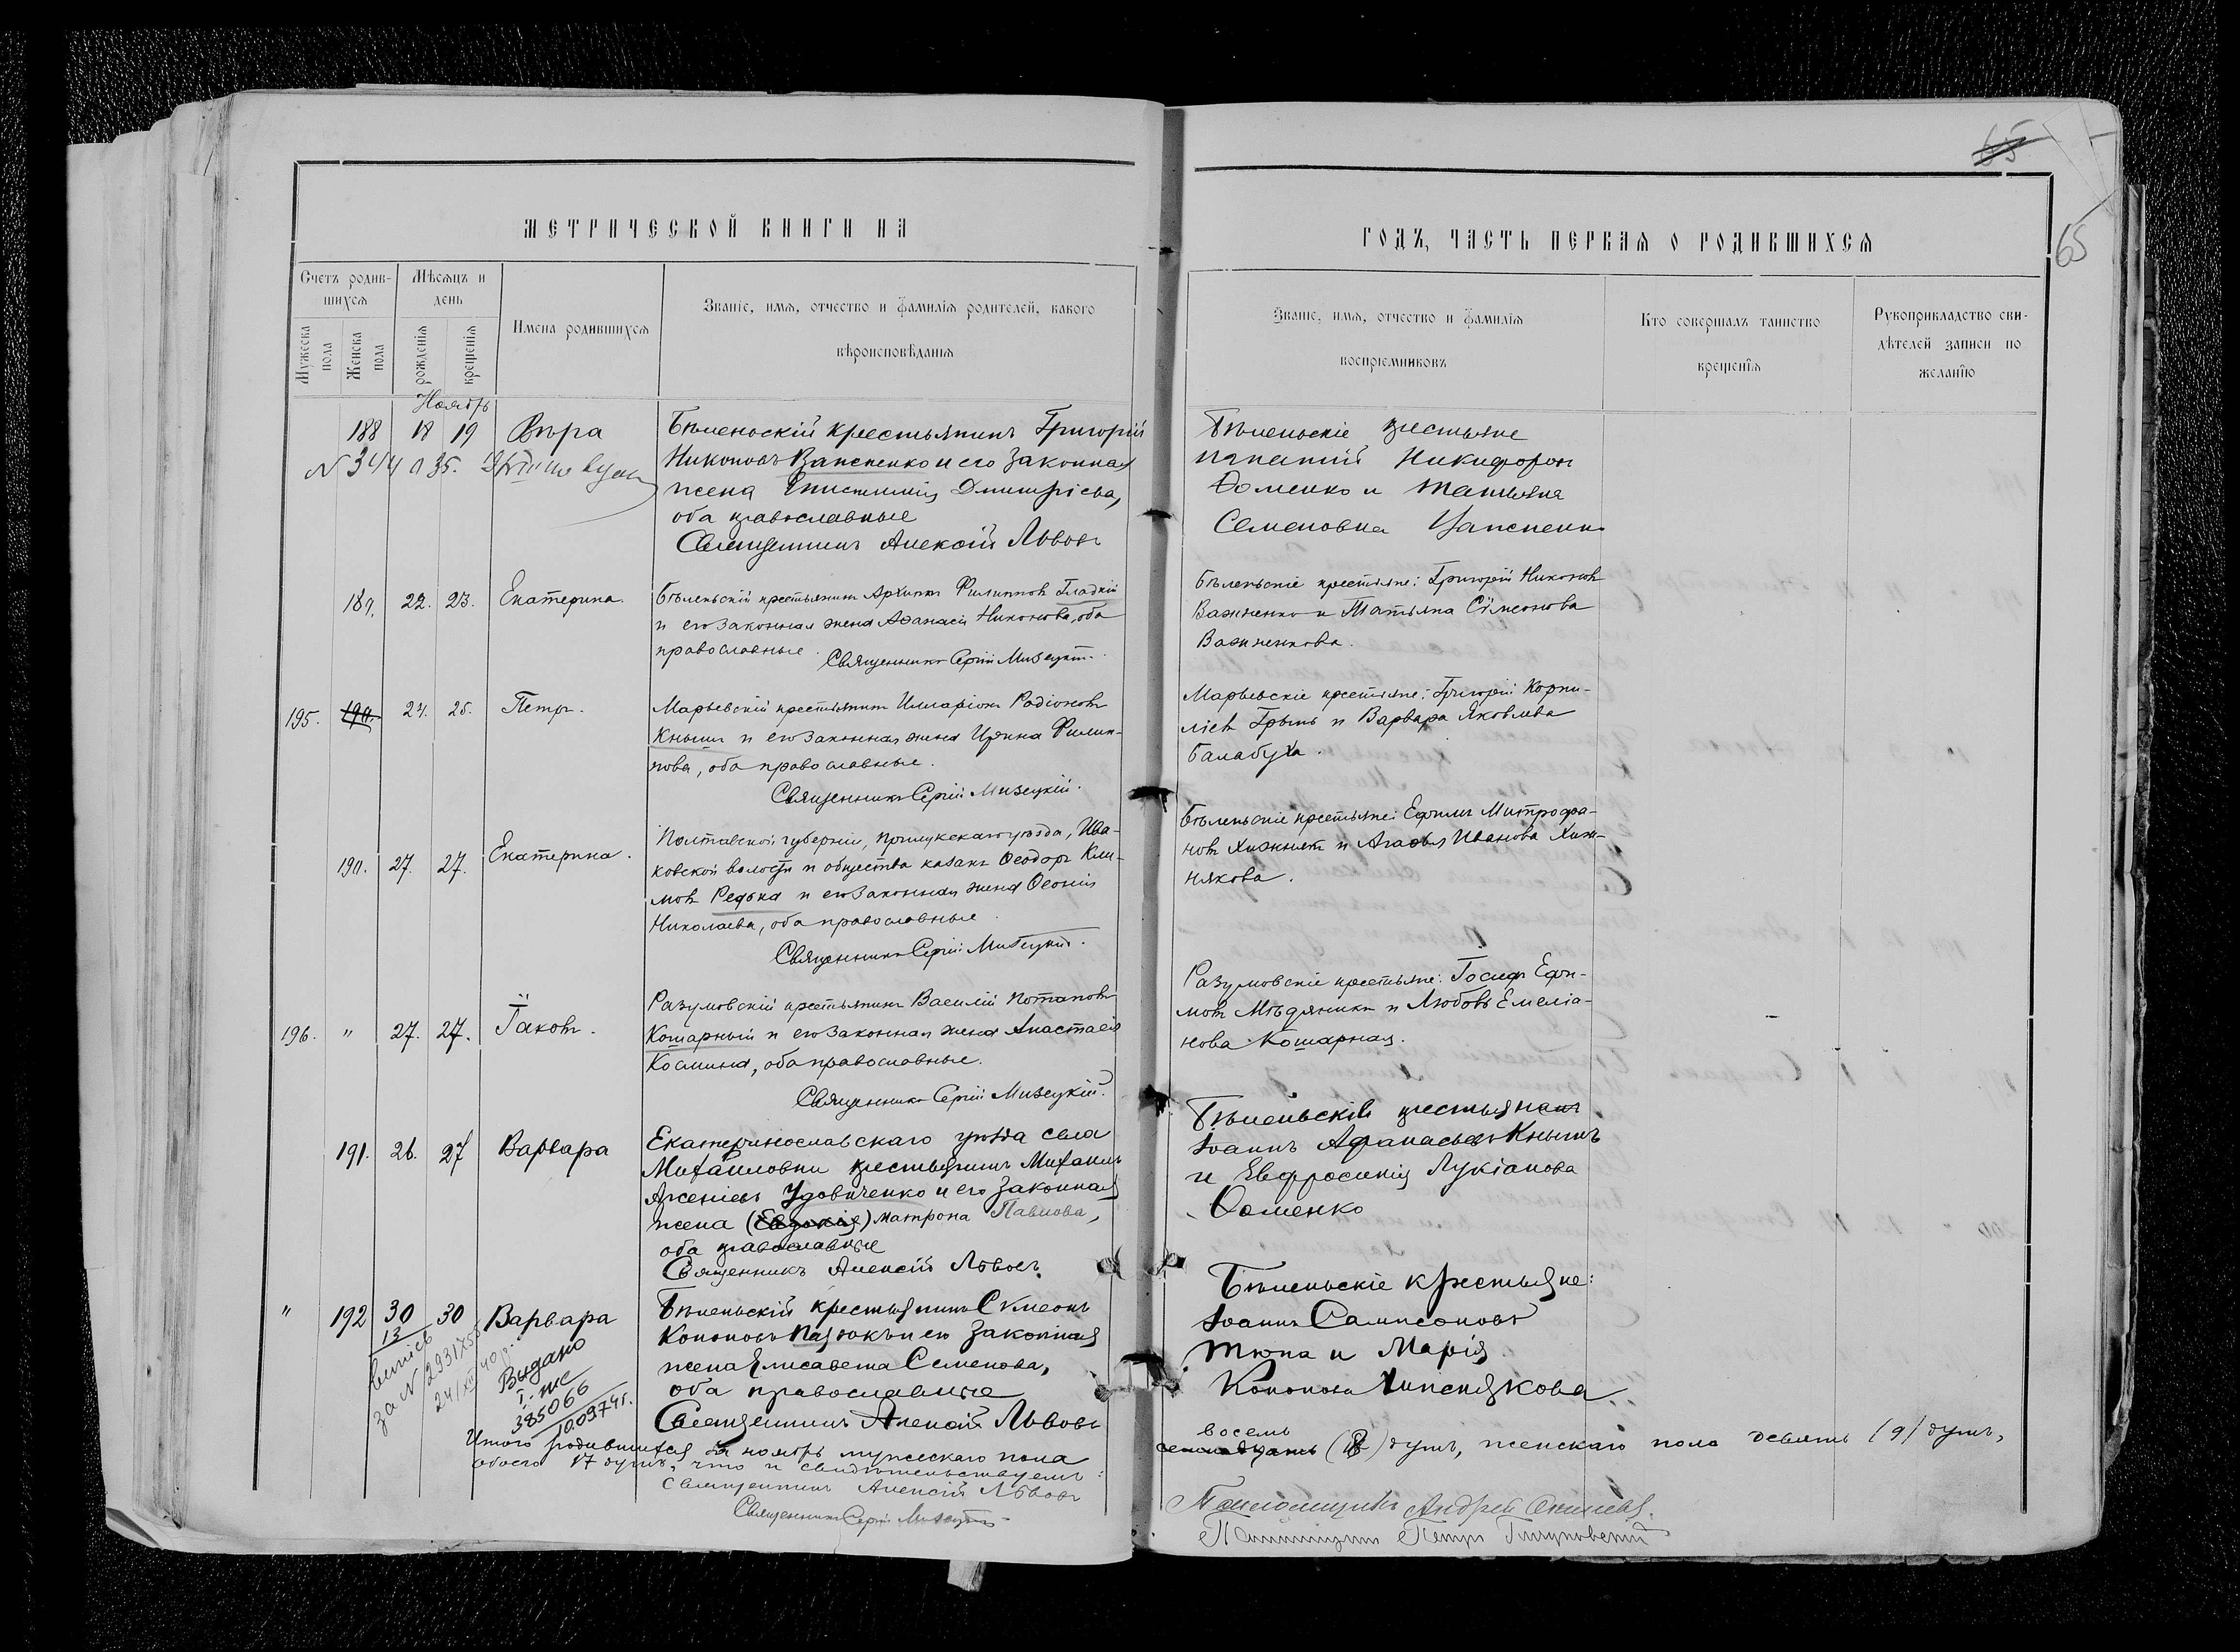 65
65
МЕТРИЧЕСКОЙ КНИГИ НА
ГОДЪ, ЧАСТЬ ПЕРВАЯ О РОДИВШИХСЯ
Счетъ родив-
шихся
Мужеска пола
Женска пола
Мѣсяцъ и
день
рожденія
крещенія
Имена родившихся
Званіе, имя, отчество и фамилія родителей, какого
вѣроисповѣданія
Званіе, имя, отчество и фамилія
воспріемниковъ
Кто совершалъ таинство
крещенія
Рукоприкладство сви-
дѣтелей записи по
желанію
Ноябрь
188 18 19 Вѣра
Бѣленьскій крестьянинъ Григорій
Никоновъ и его законная
жена Епистимія Димитріева,
оба православные
Священникъ Алексій Львовъ
Бѣленьскіе крестьяне
Игнатій Никифоровъ
Доменко и Татьяна
Семеновна
189. 22. 23. Екатерина.
Бѣленьскій крестьянинъ Архипъ Филипповъ Гладкій
и его законная жена Афанасія Никонова, оба
православные.
Священникъ Сергій Мизецкій.
Бѣленьскіе крестьяне: Григорій Никоновъ
Важненко и Татьяна Сѵмеонова
Важненкова.
195. 190. 24. 25. Петръ.
Марьевскій крестьянинъ Илларіонъ Радіоновъ
Кнышъ и его законная жена Ирина Филип-
пова, оба православные.
Священникъ Сергій Мизецкій.
Марьевскіе крестьяне: Григорій Корни-
ліевъ и Варвара Яковлева
Балабуха.
190. 27. 27. Екатерина.
Полтавской губерніи, Прилукскаго уѣзда, Ива-
ковской волости и общества казакъ Ѳеодоръ Кли-
мовъ Редька и его законная жена Ѳеонія
Николаева, оба православные.
Священникъ Сергій Мизецкій.
Бѣленьскіе крестьяне: Ефимъ Митрофа-
новъ Хижнякъ и Агафья Иванова Хиж-
някова.
196. " 27. 27. Іаковъ.
Разумовскій крестьянинъ Василій Потаповъ
Кошарный и его законная жена Анастасія
Космина, оба православные.
Священникъ Сергій Мизецкій.
Разумовскіе крестьяне: Іосифъ Ефи-
мовъ Мѣдяникъ и Любовь Емеліа-
нова Кошарная.
191. 26. 27 Варвара
Екатеринославскаго уѣзда села
Михайловки крестьянинъ Михаилъ
Арсеніевъ Удовиченко и его законная
жена (Евдокія) Матрона Павлова,
оба православные
Священникъ Алексій Львовъ.
Бѣленьскій крестьянинъ
Іоаннъ Афанасьевъ Кнышъ
и Евфросинія Лукіанова
Фоменко
" 192 30 30 Варвара
13
за №
24/XII 40 р.
Видано
І-же
38506б
Бѣленьскій крестьянинъ Сѵмеонъ
Кононовъ и его законная
жена Елисавета Семенова,
оба православные
Священникъ Алексій Львовъ
Бѣленьскіе крестьяне:
Іоаннъ Сампсоновъ
Тюпа и Марія
Кононова
Итого родившихся за ноябрь мужескаго пола
восемь
(8) душъ, женскаго пола девять (9) душъ,
обоего 17 душъ, что и свидѣтельствуемъ:
Священникъ Алексій Львовъ
Священникъ Сергій Мизецкій
Псаломщикъ Андрей
Псаломщикъ Петръ